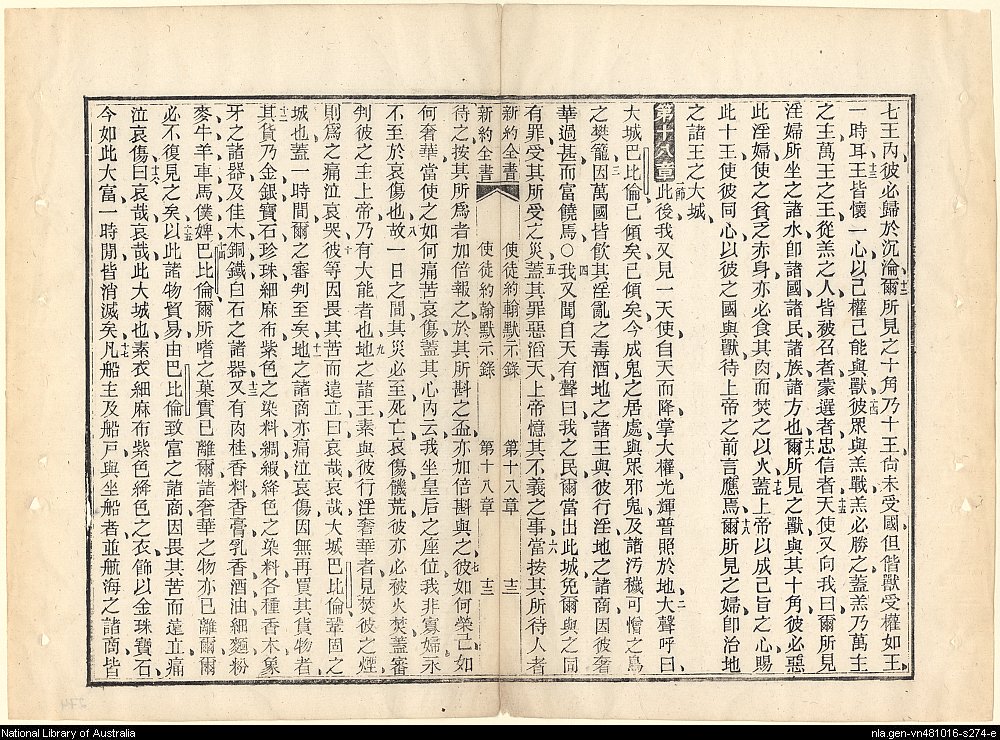 七王內彼必歸於沉淪十二爾所見之十角乃十王尙未受國但偕獸受權如王
一時耳十三王皆懷一心以己權己能與獸十四彼眾與羔戰羔必勝之蓋羔乃萬主
之主萬王之王從羔之人皆被召者蒙選者忠信者十五天使又向我曰爾所見
淫婦所坐之諸水卽諸國諸民諸族諸方也十六爾所見之獸與其十角彼必惡
此淫婦使之貧乏赤身亦必食其肉而焚之以火十七蓋上帝以成己旨之心賜
此十王使彼同心以彼之國與獸待上帝之前言應焉十八爾所見之婦卽治地
之諸王之大城
第十八章一節此後我又見一天使自天而降掌大權光輝普照於地二大聲呼曰
大城巴比倫已傾矣已傾矣今成鬼之居處與眾邪鬼及諸汚穢可憎之鳥
之樊籠三因萬國皆飲其淫亂之毒酒地之諸王與彼行淫地之諸商因彼奢
華過甚而富饒焉○四我又聞自天有聲曰我之民爾當出此城免爾與之同
有罪受其所受之災五蓋其罪惡滔天上帝憶其不義之事六當按其所待人者
新約全書 使徒約翰默示錄 第十八章 十三
新約全書 使徒約翰默示錄 第十八章 十三
待之按其所爲者加倍報之於其所斟之盃亦加倍斟與之七彼如何榮己如
何奢華當使之如何痛苦哀傷蓋其心內云我坐皇后之座位我非寡婦永
不至於哀傷也八故一日之間其災必至死亡哀傷饑荒彼亦必被火焚蓋審
判彼之主上帝乃有大能者也九地之諸王素與彼行淫奢華者見焚彼之煙
則爲之痛泣哀哭十彼等因畏其苦而遠立曰哀哉哀哉大城巴比倫鞏固之
城也蓋一時間爾之審判至矣十一地之諸商亦痛泣哀傷因無再買其貨物者
十二其貨乃金銀寶石珍珠細麻布紫色之染料綢緞絳色之染料各種香木象
牙之諸器及佳木銅鐵白石之諸器十三又有肉桂香料香膏乳香酒油細麵粉
麥牛羊車馬僕婢十四巴比倫爾所嗜之菓實已離爾諸奢華之物亦已離爾爾
必不復見之矣十五以此諸物貿易由巴比倫致富之諸商因畏其苦而遠立痛
泣哀傷曰十六哀哉哀哉此大城也素衣細麻布紫色絳色之衣飾以金珠寶石
今如此大富一時間皆消滅矣十七凡船主及船戶與坐船者並航海之諸商皆
National Library of Australia
nla.gen-vn481016-s274-e